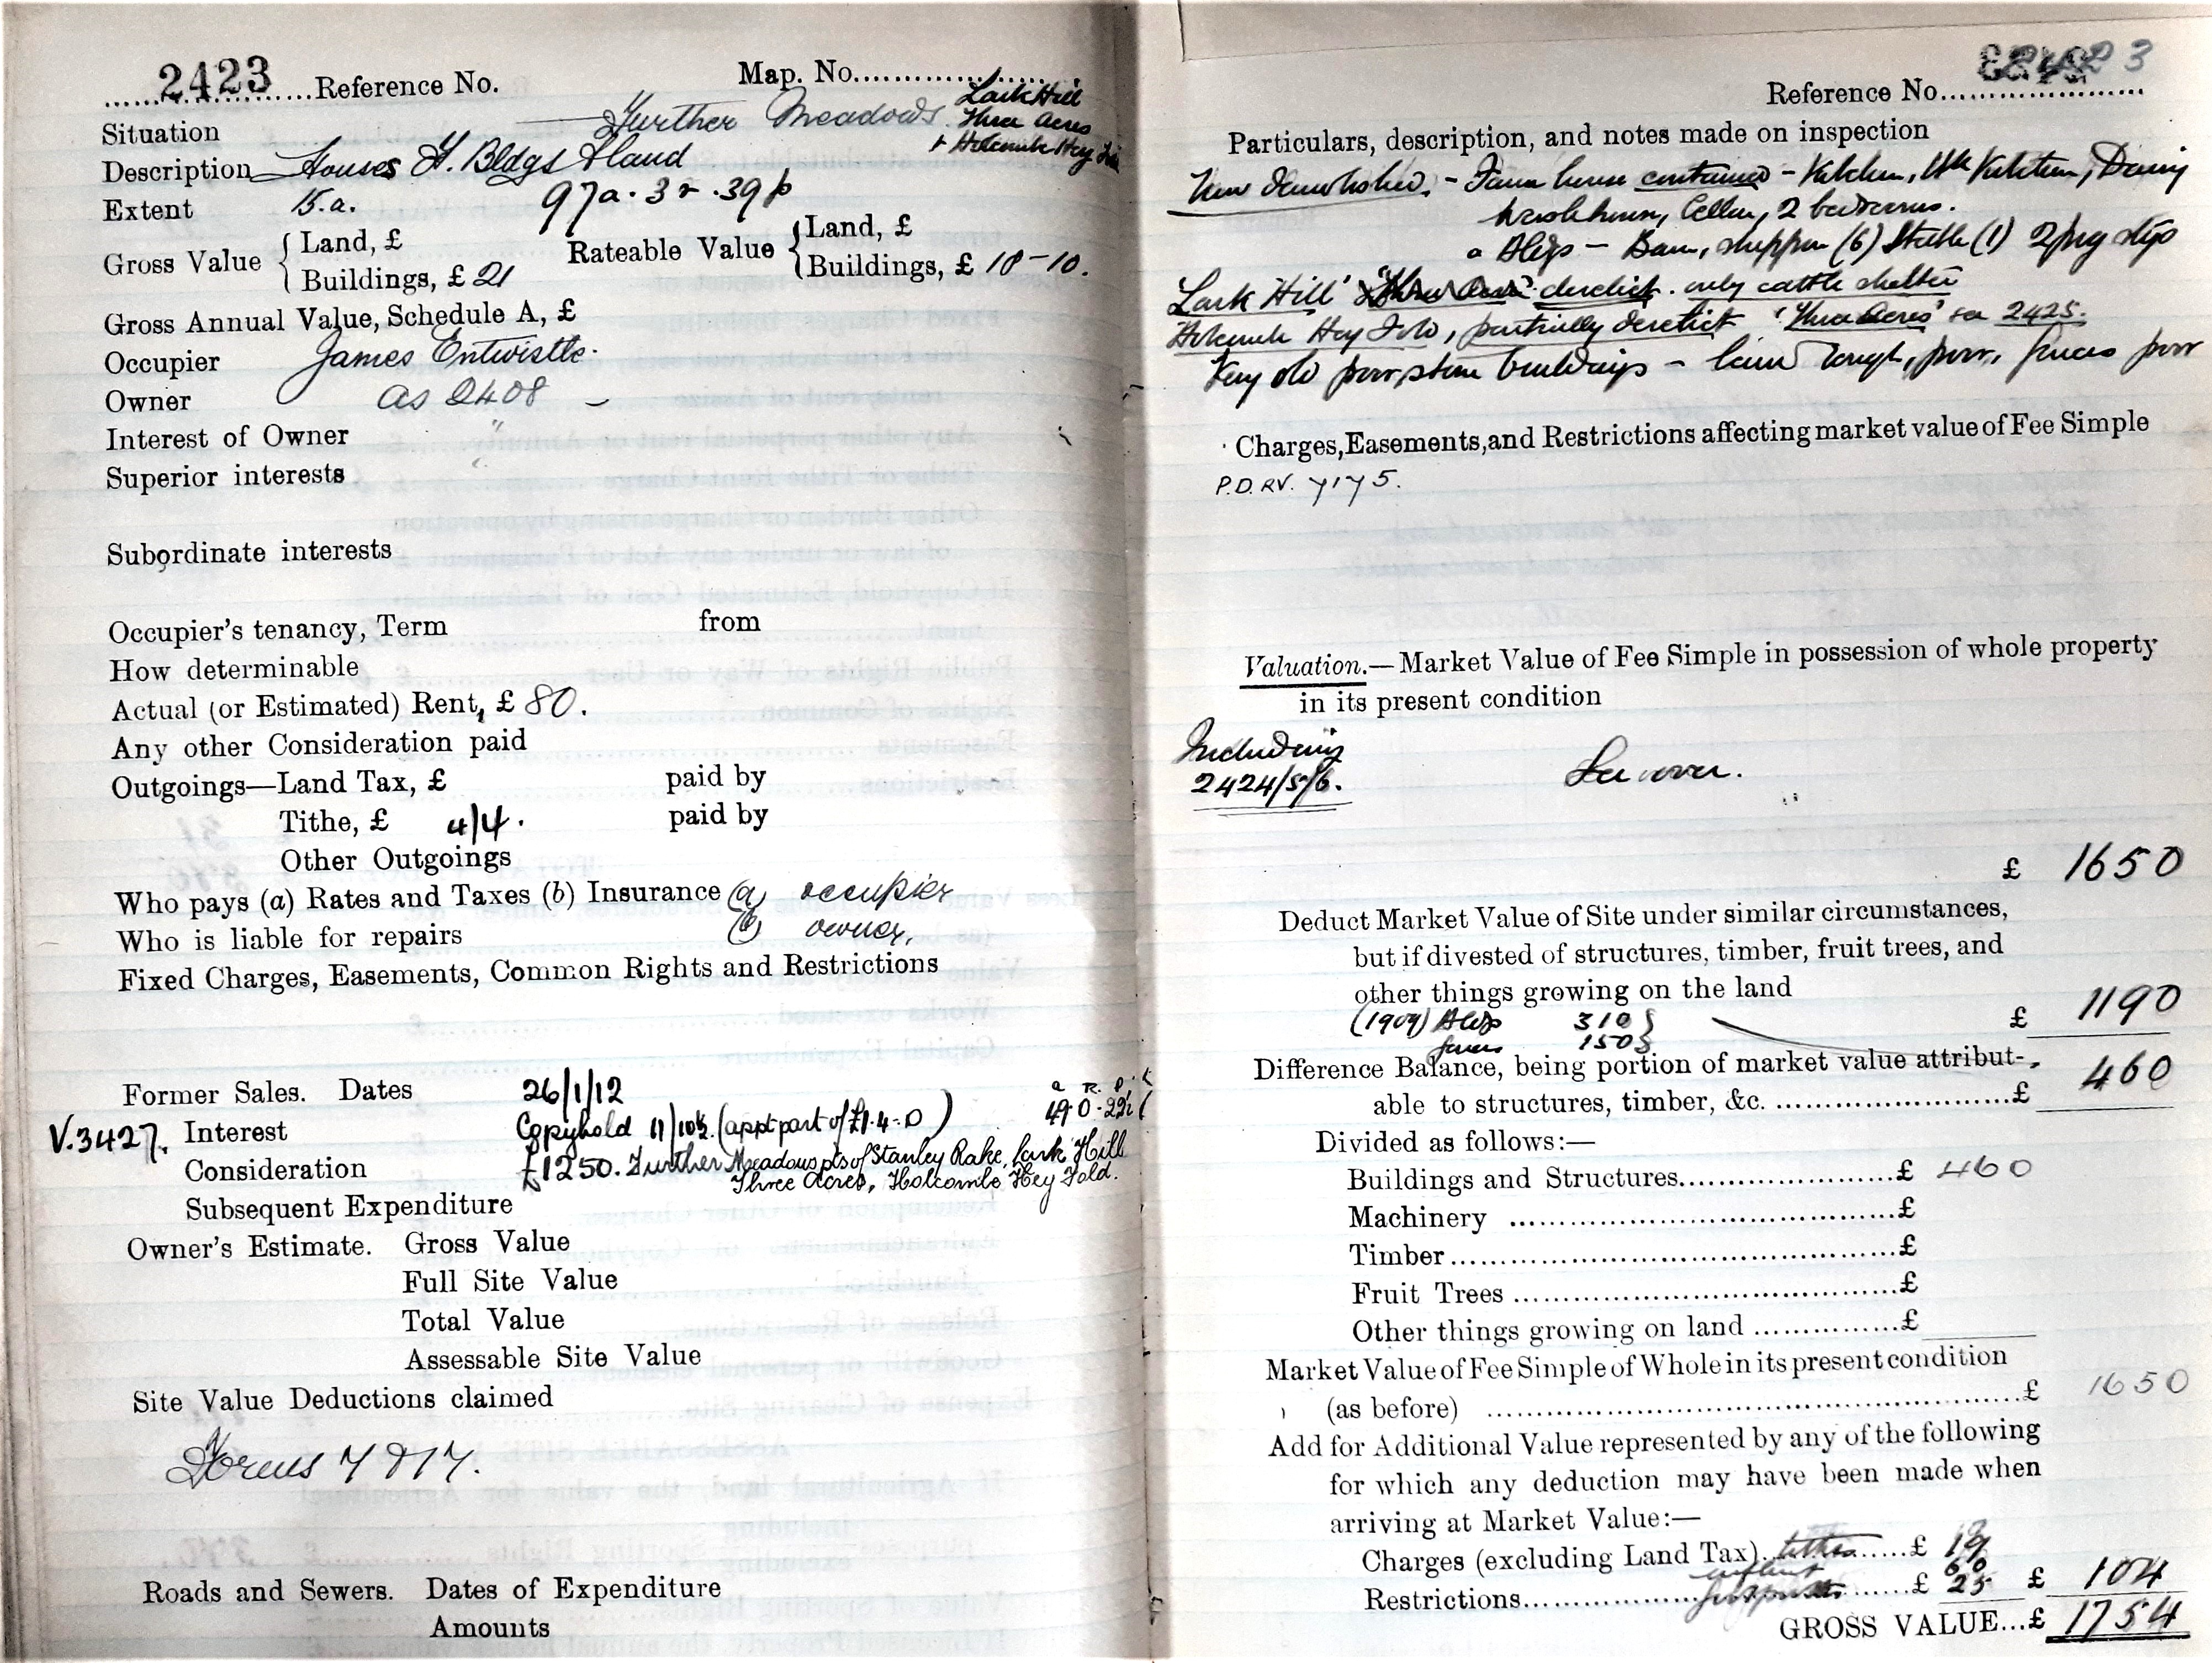 2423 Reference No. Map. No.
Lark Hill
Situation Further Meadows Three Acres
+ Holcombe Hey Fold
Description Houses F. Bldgs & land
Extent 15.a. 97a. 3r. 39p
Gross Value { Land, £ Rateable Value { Land, £
Buildings, £ 21 Buildings, £ 18-10.
Gross Annual Value, Schedule A, £
Occupier James Entwistle.
Owner as 2408 -
Interest of Owner "
Superior interests
Subordinate interests
Occupier's tenancy, Term from
How determinable
Actual (or Estimated) Rent, £ 80.
Any other Consideration paid
Outgoings—Land Tax, £ paid by
Tithe, £ 4/4. paid by
Other Outgoings
Who pays (a) Rates and Taxes (b) Insurance (a) occupier
Who is liable for repairs (b) owner.
Fixed Charges, Easements, Common Rights and Restrictions
Former Sales. Dates 26/1/12 a R. P.
V.3427. Interest Copyhold 11/10½ (appt part of £1.4.0) 49.0.22
Consideration £1250. Further Meadows pts of Stanley Rake, Lark Hill
Three Acres, Holcombe Hey Fold.
Subsequent Expenditure
Owner's Estimate. Gross Value
Full Site Value
Total Value
Assessable Site Value
Site Value Deductions claimed
Roads and Sewers. Dates of Expenditure
Amounts
2423
Reference No.
Particulars, description, and notes made on inspection
Now demolished. - Farm house contained - Kitchen, Bk Kitchen, Dairy
Washhouse, Cellar, 2 bedrooms.
Bldgs - Barn, shippon (6) Stable (1) 2 pig stys
Lark Hill' derelict. only cattle shelter
Holcombe Hey Fold, partially derelict 'Three Acres' see 2425.
Very old poor stone buildings - land rough, poor, fences poor
Charges, Easements, and Restrictions affecting market value of Fee Simple
P.D. RV. 7175.
Valuation.—Market Value of Fee Simple in possession of whole property
in its present condition
Including
2424/5/6. See over.
£ 1650
Deduct Market Value of Site under similar circumstances,
but if divested of structures, timber, fruit trees, and
other things growing on the land
(1909) Bldgs 310 } £ 1190
fences 150 }
Difference Balance, being portion of market value attribut-
able to structures, timber, &c. £ 460
Divided as follows:—
Buildings and Structures £ 460
Machinery £
Timber £
Fruit Trees £
Other things growing on land £
Market Value of Fee Simple of Whole in its present condition
(as before) £ 1650
Add for Additional Value represented by any of the following
for which any deduction may have been made when
arriving at Market Value:—
Charges (excluding Land Tax) tithes £ 19
60
Restrictions footpaths £ 25 £ 104
GROSS VALUE...£ 1754